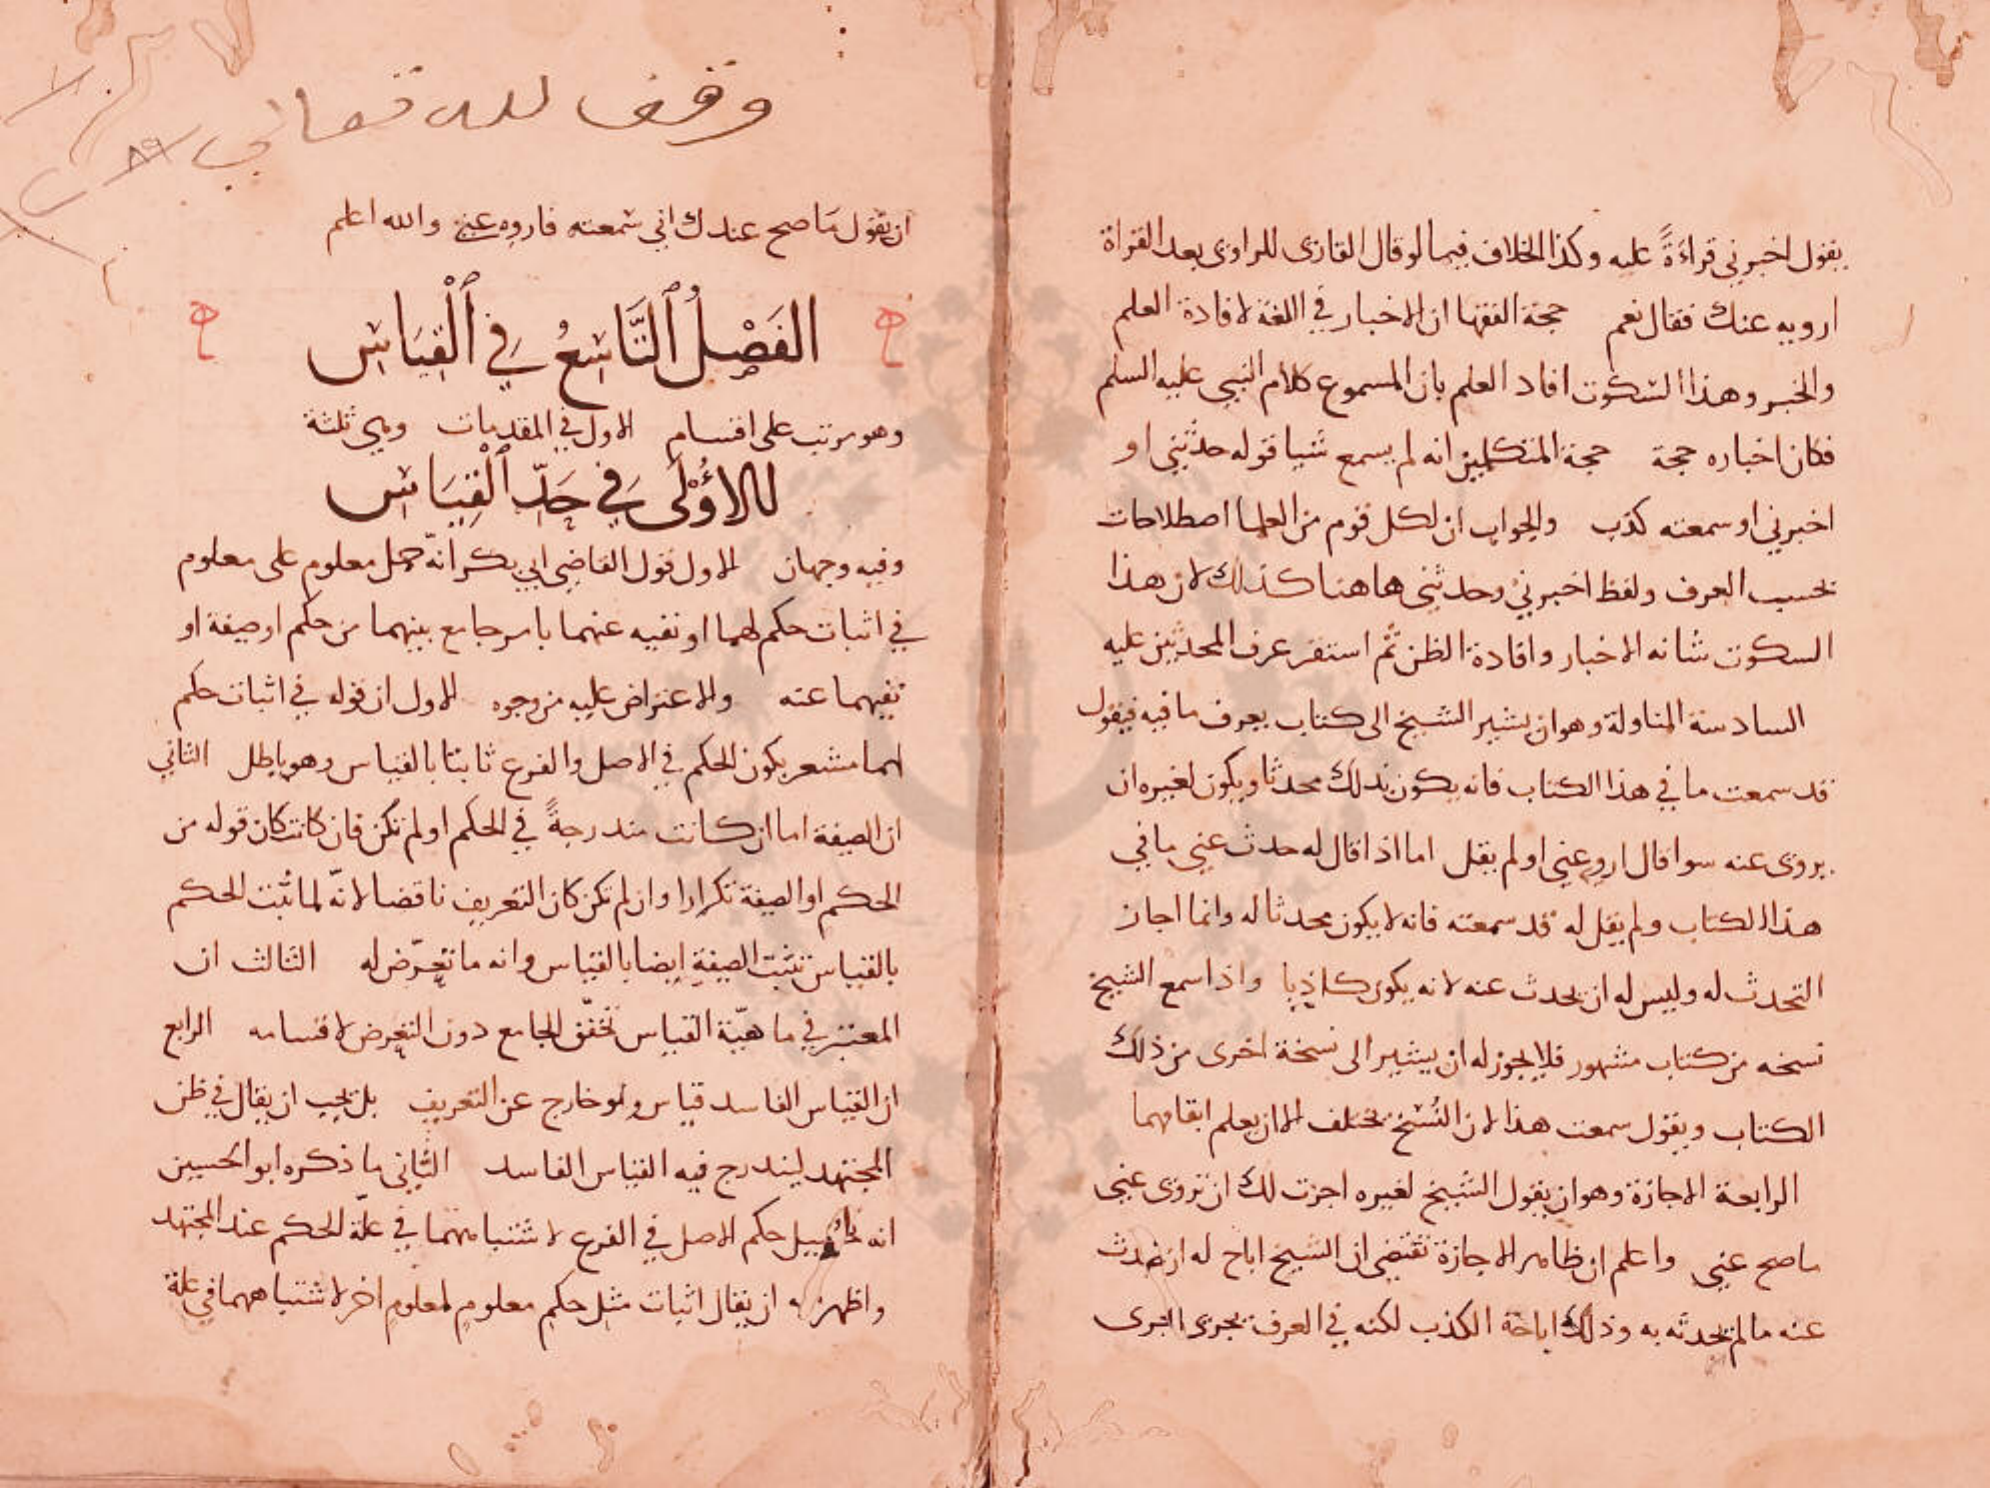 يقول اخبرني قراءةً عليه وكذا الخلاف فيما لو قال القارى للراوى بعد القراة
ارويه عنك فقال نعم حجة الفقها ان الاخبار في اللغة لافادة العلم
والخبر وهذا السكوت افاد العلم بان المسموع كلام النبي عليه السلم
فكان اخباره حجة حجة المتكلمين انه لم يسمع شيا قوله حدثني او
اخبرني او سمعته كذب والجواب ان لكل قوم من العلما اصطلاحات
بحسب العرف ولفظ اخبرني وحدثني هاهنا كذلك لان هذا
السكوت شانه الاخبار وافادة الظن ثم استقر عرف المحدثين عليه
السادسة المناولة وهو ان يشير الشيخ الى كتاب يعرف ما فيه فيقول
قد سمعت ما في هذا الكتاب فانه يكون بذلك محدثا ويكون لغيره ان
يروى عنه سوا قال اروه عني او لم يقل اما اذا قال له حدث عني ما في
هذا الكتاب ولم يقل له قد سمعته فانه لا يكون محدثا له وانما اجاز
التحدث له وليس له ان يحدث عنه لانه يكون كاذبا واذا سمع الشيخ
نسخه من كتاب مشهور فلا يجوز له ان يشير الى نسخة اخرى من ذلك
الكتاب ويقول سمعت هذا لان النُسَخ تختلف الا ان يعلم اتفاقهما
الرابعة الاجازة وهو ان يقول الشيخ لغيره اجزت لك ان تروى عني
ما صح عني واعلم ان ظاهر الاجازة تقتضى ان الشيخ اباح له ان يحدث
عنه ما لم يحدثه به وذلك اباحة الكذب لكنه في العرف يجرى مجرى
وقف لله تعالى
ان يقول ما صح عندك اني سمعته فاروه عني والله اعلم
الفَصْلُ ٱلتَّاسِعُ في ٱلْقِيَاسِ
وهو مرتب على اقسام الاول في المقدمات وهي ثلثة
الاُوْلَى في حَدِّ ٱلْقِيَاسِ
وفيه وجهان الاول قول القاضي ابي بكر انّه حمل معلوم على معلوم
في اثبات حكم لهما او نفيه عنهما بامر جامع بينهما من حكم او صفة او
نفيهما عنه والاعتراض عليه من وجوه الاول ان قوله في اثبات حكم
لهما مشعر بكون الحكم في الاصل والفرع ثابتا بالقياس وهو باطل الثاني
ان الصفة اما ان كانت مندرجةً في الحكم او لم تكن فان كانت كان قوله من
الحكم او الصفة تكرارا وان لم تكن كان التعريف ناقصا لانّه لما ثبت الحكم
بالقياس تثبت الصفة ايضا بالقياس وانه ما تعرّض له الثالث ان
المعتبر في ماهيّة القياس تحقّق الجامع دون التعرض لاقسامه الرابع
ان القياس الفاسد قياس وهو خارج عن التعريف بل يجب ان يقال في ظن
المجتهد ليندرج فيه القياس الفاسد الثّاني ما ذكره ابو الحسين
انه تحصيل حكم الاصل في الفرع لاشتباههما في علّة الحكم عند المجتهد
واظهر منه ان يقال اثبات مثل حكم معلومٍ لمعلومٍ اخر لاشتباههما في علة